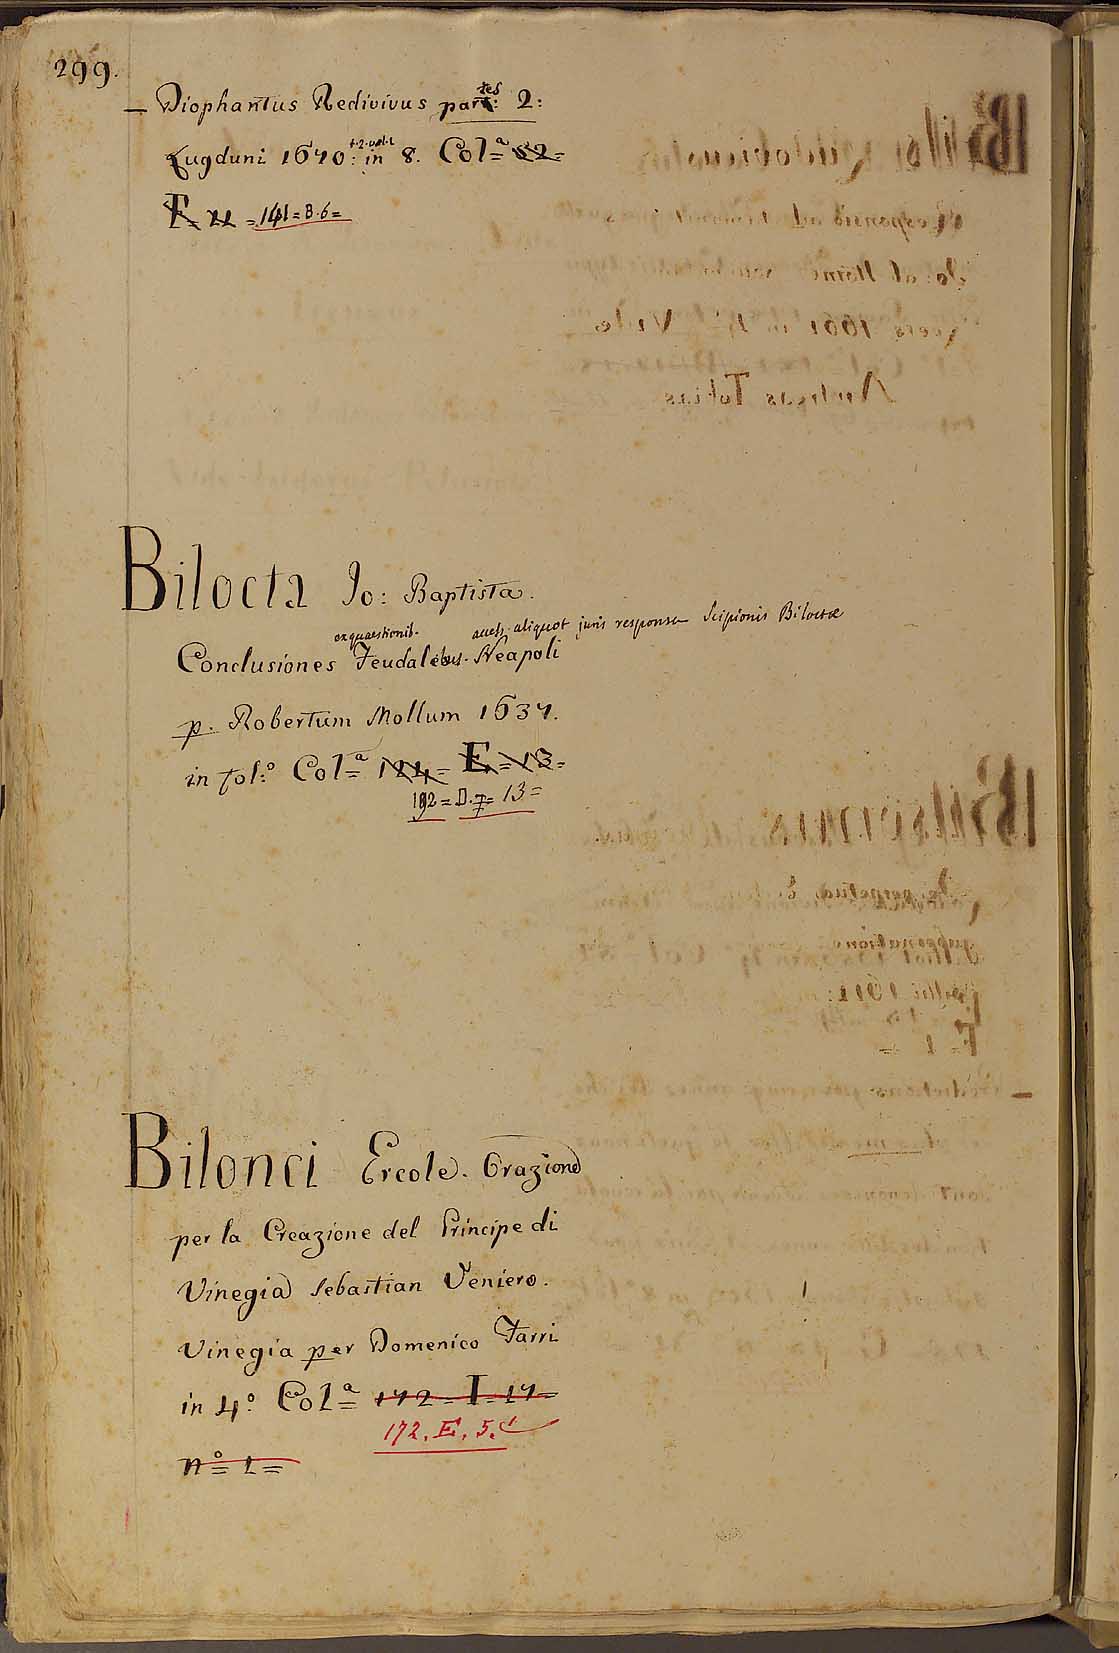 299.
— Diophantus Redivivus partes: 2:
Lugduni 1670: t. 2. vol. 1 in 8. Col=a 82=
F= 22 = 141 = B. 6 =
Bilocta Jo: Baptista.
ex quaestionib. auch. aliquot juris responsa Scipionis Bilottae
Conclusiones Feudalibus. Neapoli
p. Robertum Mollum 1637.
in fol:o Col=a 124= E = 13=
192 = D. 7 = 13 =
Bilonci Ercole. Orazione
per la Creazione del Principe di
Vinegia Sebastian Veniero.
Vinegia per Domenico Farri
in 4:o Col=a 172 = I = 17=
172. E. 5.
no= 1 =